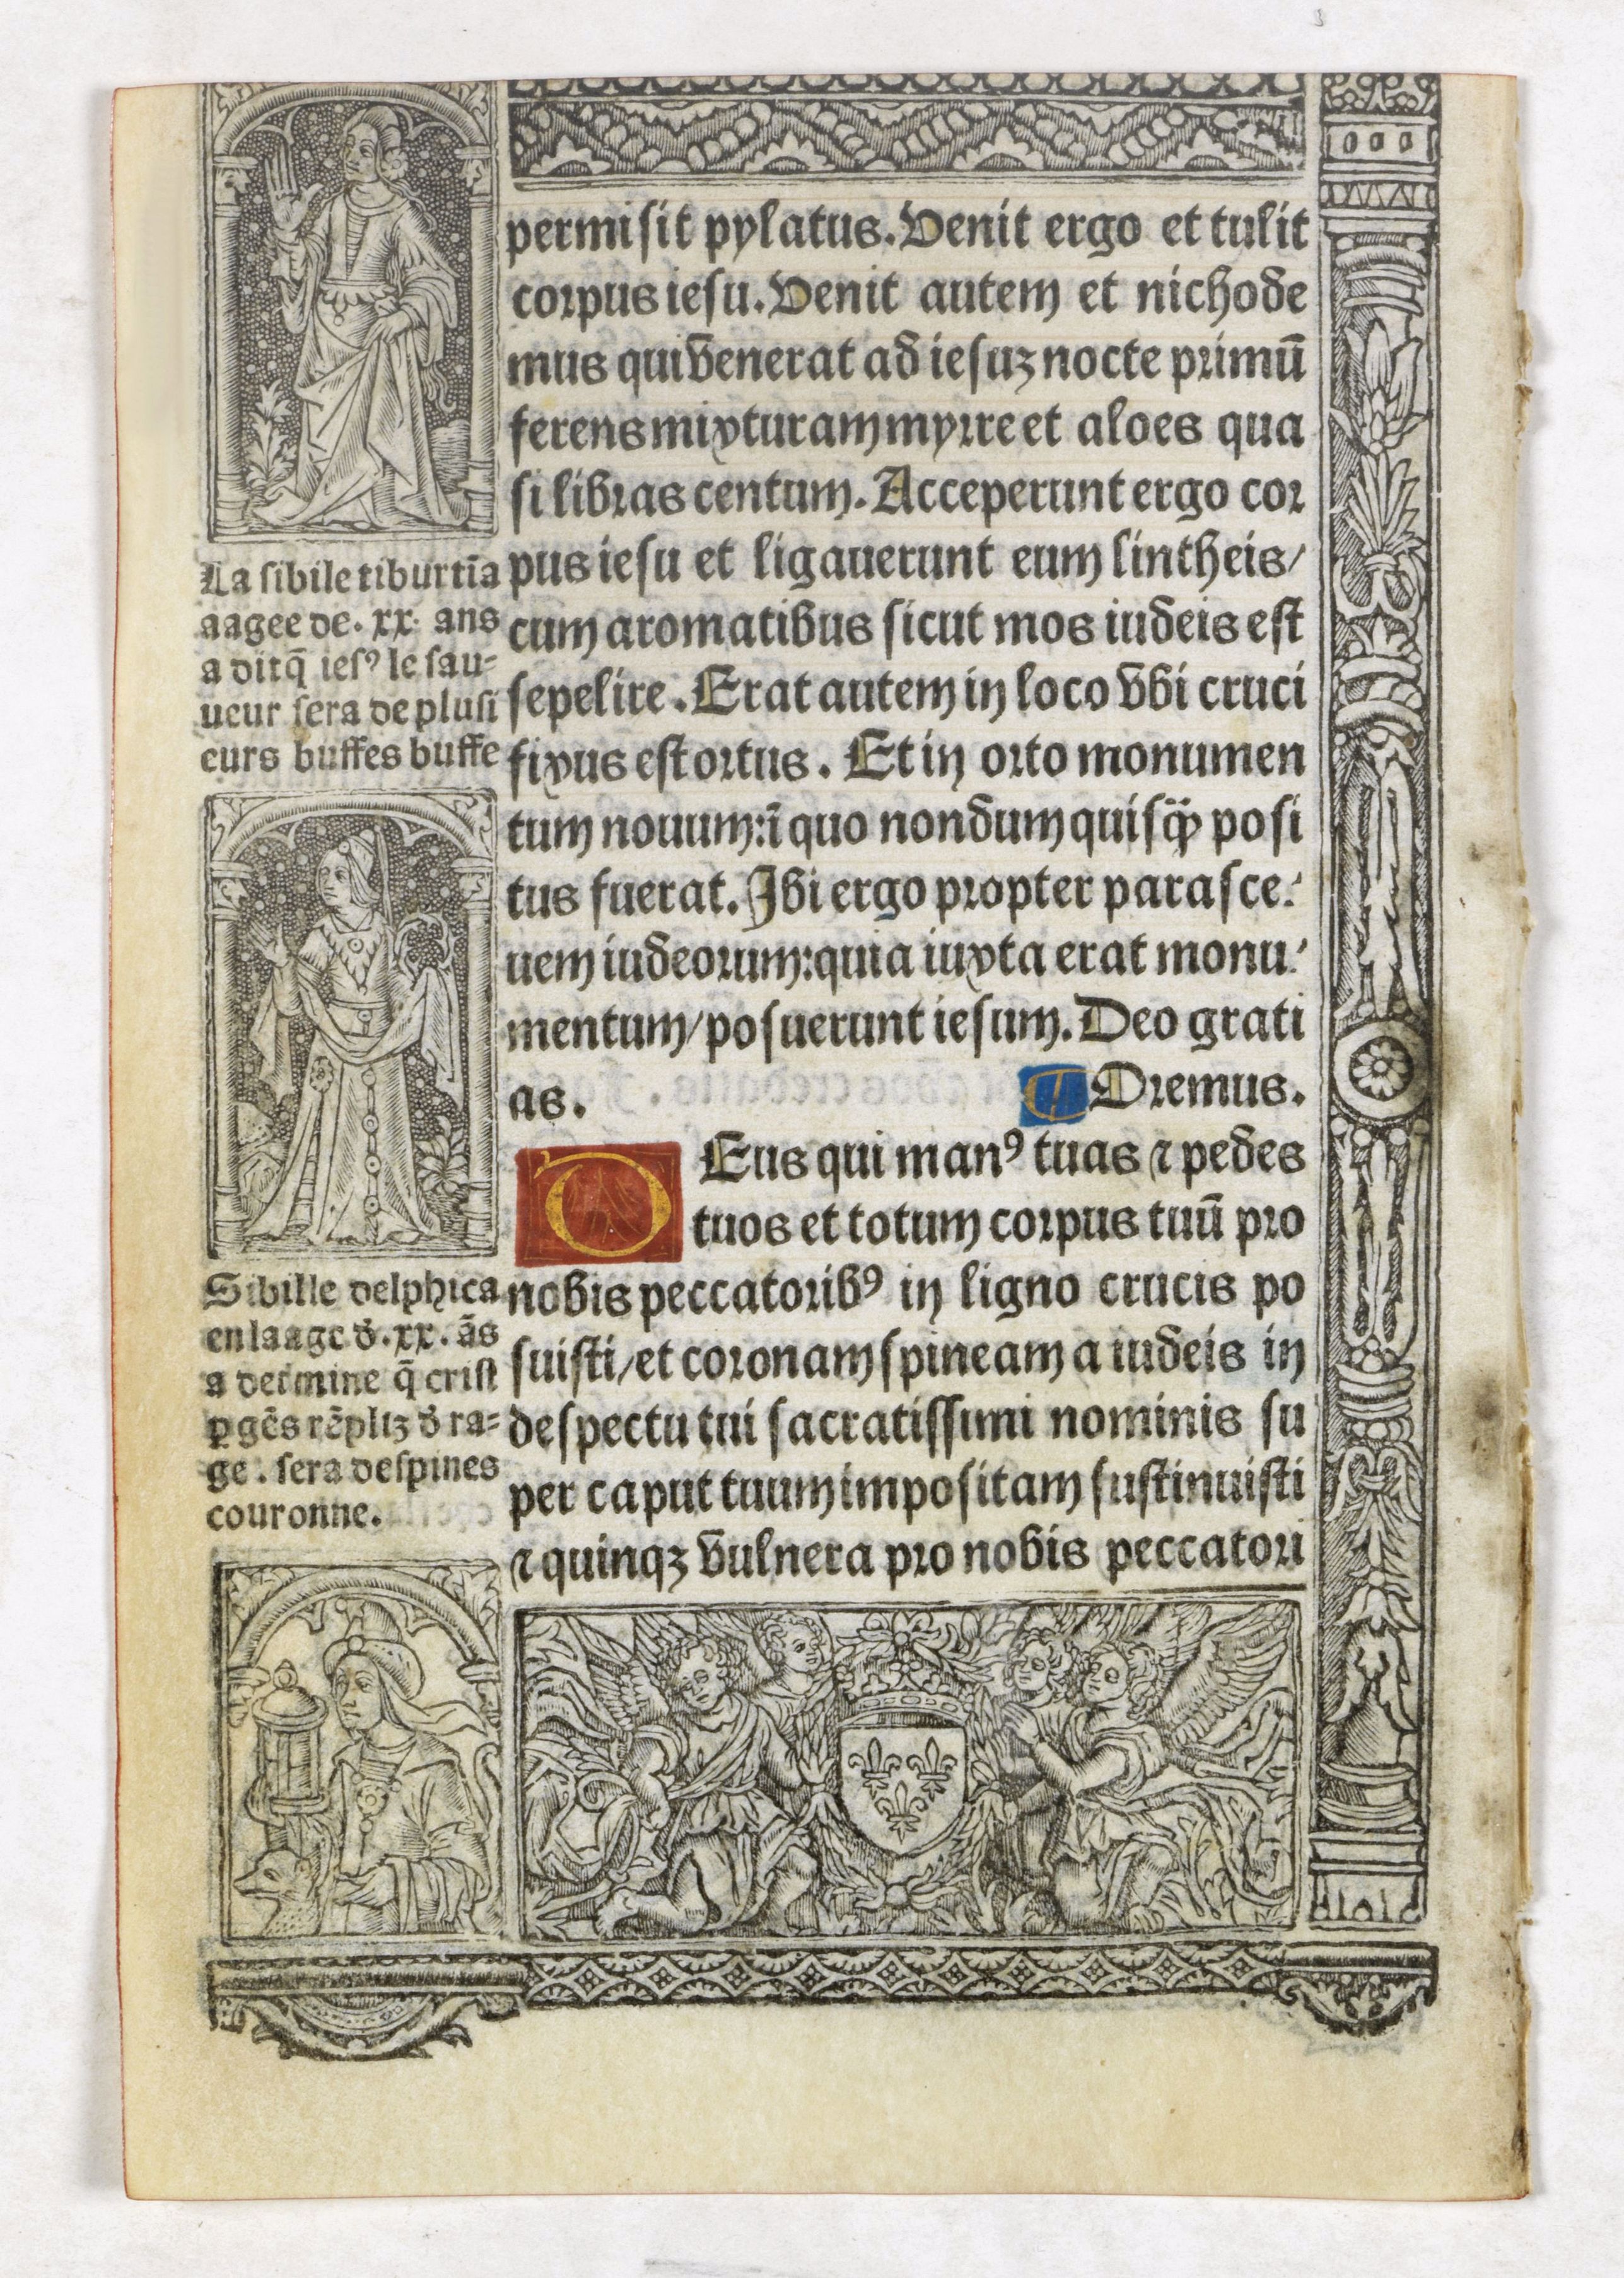 permisit pylatus. Venit ergo et tulit
corpus iesu. Venit autem et nichode
mus qui venerat ad iesuz nocte primū
ferens mixturam myrre et aloes qua
si libras centum. Acceperunt ergo cor
pus iesu et ligauerunt eum lintheis/
cum aromatibus sicut mos iudeis est
sepelire. Erat autem in loco vbi cruci
fixus est ortus. Et in orto monumen
tum nouum: ī quo nondum quisqꝫ posi
tus fuerat. Ibi ergo propter parasce⸗
uem iudeorum: quia iuxta erat monu⸗
mentum/ posuerunt iesum. Deo grati
as. ¶ Oremus.
DEus qui manꝰ tuas ⁊ pedes
tuos et totum corpus tuū pro
nobis peccatoribꝰ in ligno crucis po
suisti/ et coronam spineam a iudeis in
despectu tui sacratissimi nominis su
per caput tuum impositam sustinuisti
⁊ quinqꝫ vulnera pro nobis peccatori
La sibile tiburtīa
aagee de. xx. ans
a dit q̄ iesꝰ le sau⸗
ueur sera de plusi
eurs buffes buffe
Sibille delphica
en laage d̄. xx. ās
a determine q̄ crist
ꝑ gēs rēpliz d̄ ra⸗
ge. sera despines
couronne.